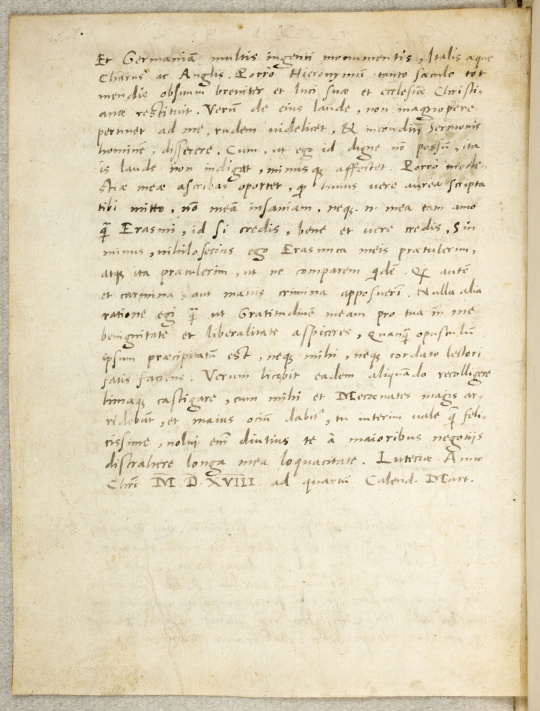 Et Germaniã multis ingenii monumentis, Italis æque
Charus ac Anglis. Porro Hieronymũ tanto sæculo tot
mendis obsitum breviter et luci suæ et ecclesiæ Christi-
anæ restituit. Verũ de eius laude, non magnopere
pertinet ad me, rudem videlicet, & incondiți sermonis
hominẽ, disserere. Cum, ut ego id digne nõ possũ, ita
is laude non indiget, minusq; affectet. Porro modes-
tiæ meæ ascribas oportet, q huius vere aurea scripta
tibi mitto, nõ meã insaniam, neq. n. mea tam amo
q̃ Erasmi, id si credis, bene et vere credis, Sin
minus, nihilosecius ego Erasmica meis prætulerim,
atq; ita prætulerim, ut ne comparem qdẽ. Q autẽ
et carmina, aut maius crimina apposuerĩ. Nulla alia
ratione egi q̃ ut Gratitudinẽ meam pro tua in me
benignitate et liberalitate aspiceres, quanq̃ opusculũ
ipsum præcipitatũ est, neq; mihi, neq; cordato lectori
satis faciens. Verum licebit eadem aliquãdo recolligere
limaq; castigare, cum mihi et Mecœnates magis ar-
ridebũt, et maius ociũ dabit^r, tu interim vale q̃ feli-
cissime, nolui em̃ diutius te à maioribus negotijs
distrahere longa mea loquacitate. Luteciæ Anno
Chrĩ M D XVIII ad quartũ Calend. Mart.